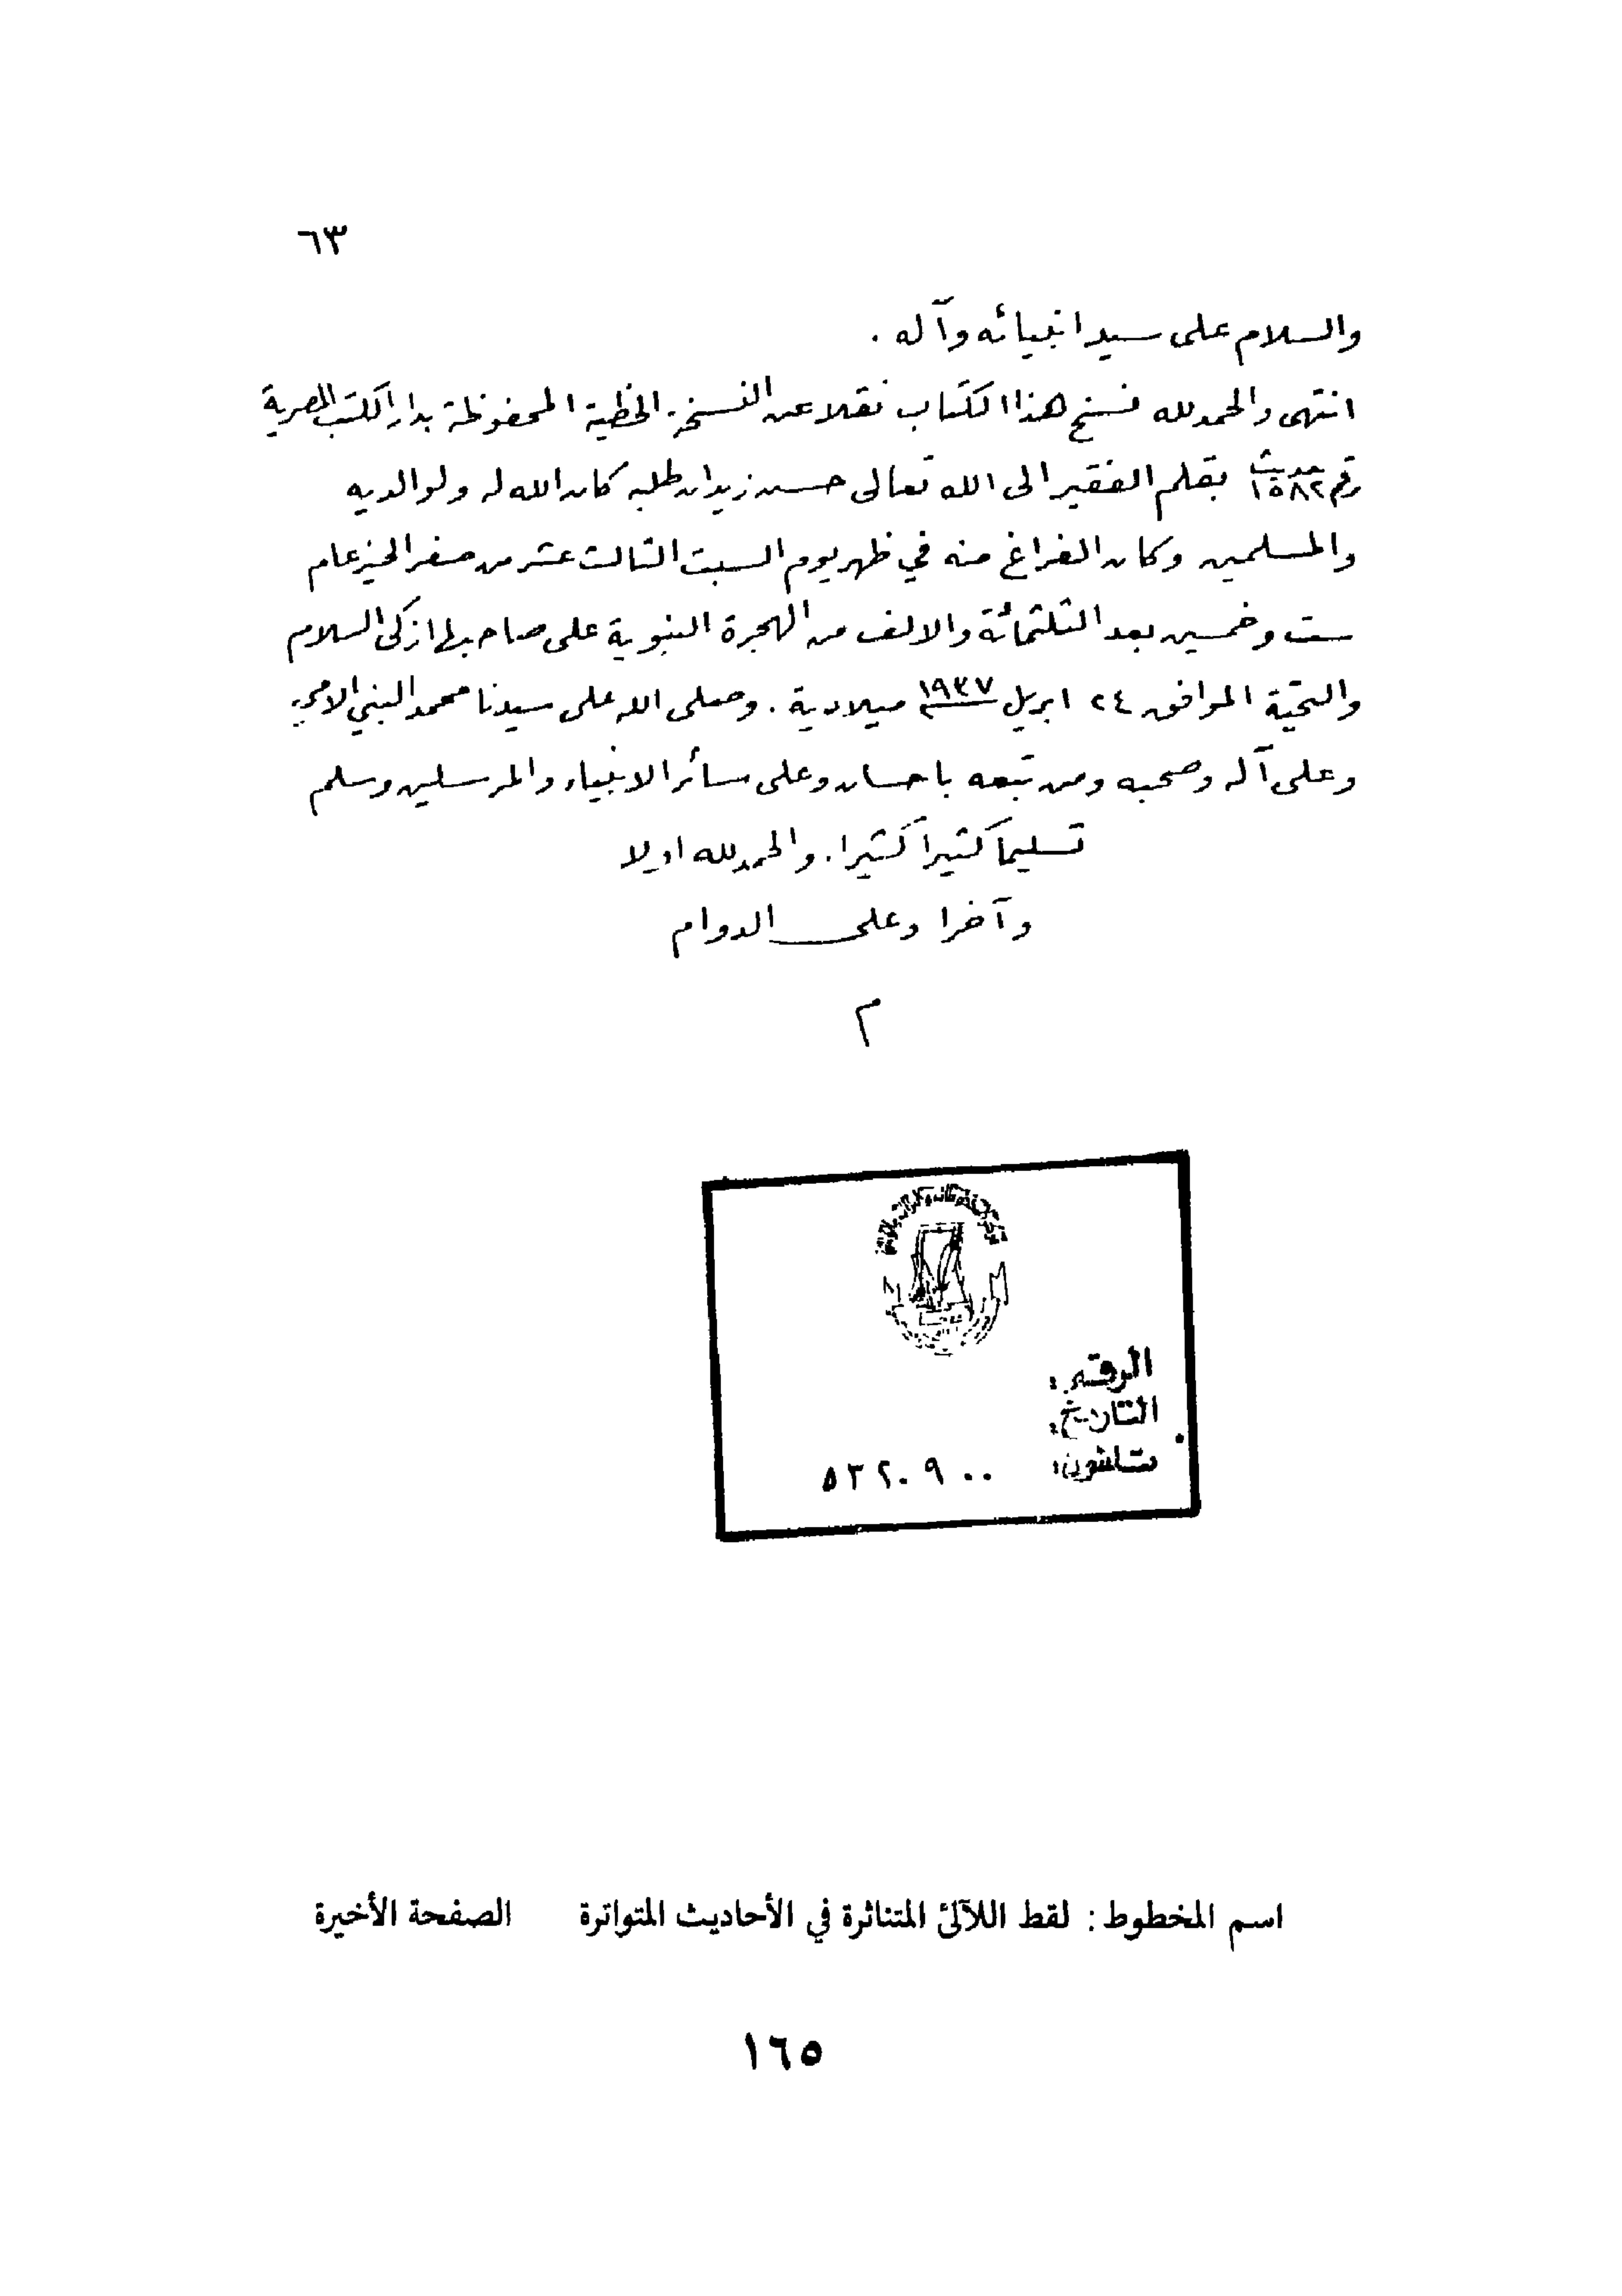 ٦٣
والسلام على سيد انبيائه وآله .
انتهى والحمد لله نسخ هذا الكتاب نقلا عن النسخة الخطية المحفوظة بدار الكتب المصرية
رقم ١٥٨٢ حديث بقلم الفقير الى الله تعالى حسن زيدان طلبه كان الله له ولوالديه
والمسلمين وكان الفراغ منه في ظهر يوم السبت الثالث عشر من صفر الخير عام
ست وخمسين بعد الثلثمائة والالف من الهجرة النبوية على صاحبها ازكى السلام
والتحية الموافق ٢٤ ابريل ١٩٣٧ ميلادية . وصلى الله على سيدنا محمد النبي الامي
وعلى آله وصحبه ومن تبعه باحسان وعلى سائر الانبياء والمرسلين وسلم
تسليماً كثيراً كثيرا . والحمد لله اولا
وآخرا وعلى الدوام
م
الرقم :
التاريخ :
تلفون : ٥٣٢٠٩٠٠
اسم المخطوط : لقط اللآلئ المتناثرة في الأحاديث المتواترة الصفحة الأخيرة
١٦٥